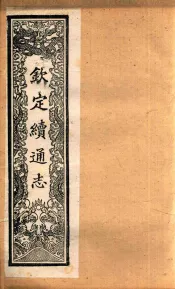 欽定續通志